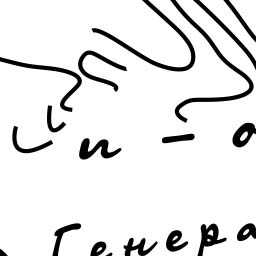 и - о
Генера